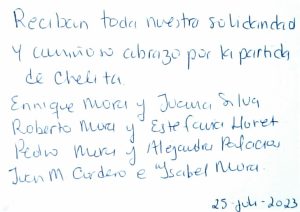 Reciban toda nuestra solidaridad
y cariñoso abrazo por la partida
de Chelita.
Enrique Mora y Juana Silva
Roberto Mora y Estefania Lloret
Pedro Mora y Alejandra Palacios
Juan M Cordero e Ysabel Mora.
25-Jul-2023